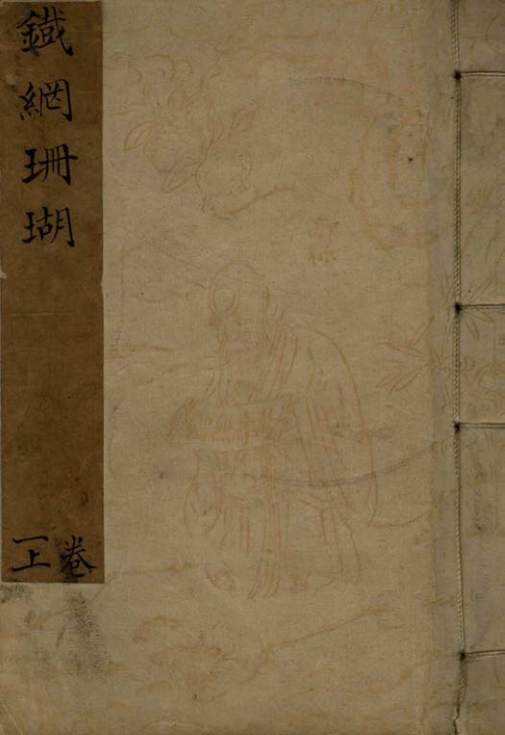 鐵網珊瑚
卷
一上